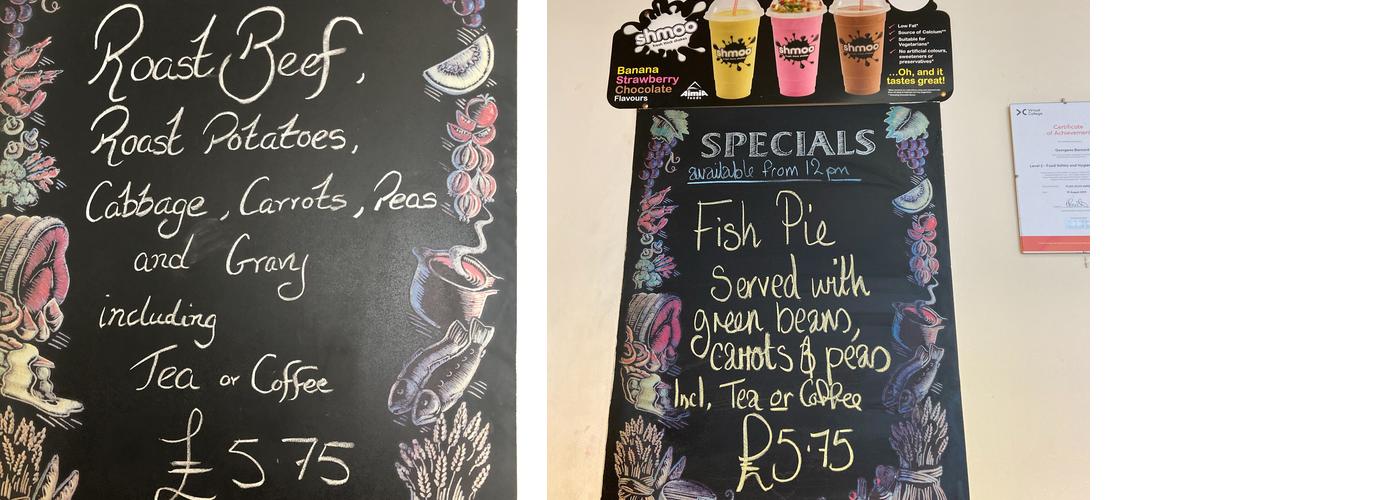 Roast Beef,
Roast Potatoes,
Cabbage, Carrots, Peas
and Gravy
including
Tea or Coffee
£5.75
shmoo
shmoo
shmoo
shmoo
Banana
Strawberry
Chocolate
Flavours
Aimia
foods
Low Fat*
Source of Calcium**
Suitable for
Vegetarians*
No artificial colours,
sweeteners or
preservatives*
...Oh, and it
tastes great!
SPECIALS
available from 12pm
Fish Pie
Served with
green beans,
carrots & peas
Incl. Tea or Coffee
£5.75
Virtual
College
Certificate
of Achievement